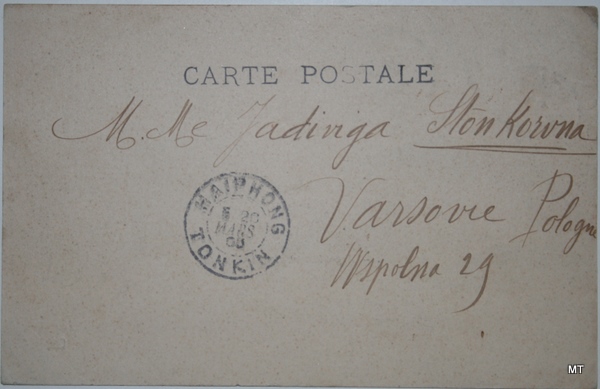 CARTE POSTALE
M. Me Jadiviga Stonkorvna
Varsovie Pologne
Wspolna 29
HAIPHONG
MARS
TONKIN
MT